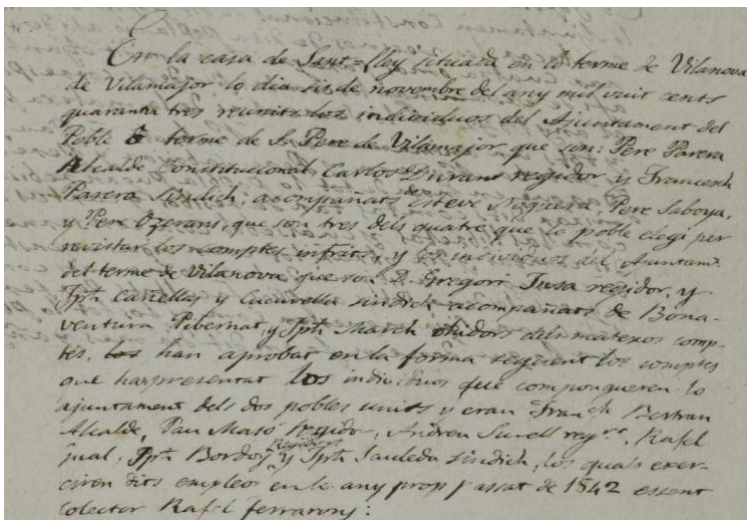 En la casa de Sant=lley situada en lo terme de Vilanova
de Vilamajor lo dia sis de novembre del any mil vuit cents
quaranta tres reunits los individuos del Ajuntament del
Poble ô terme de S. Pere de Vilamajor que son: Pere Parera
Alcalde Constitucional Carlos Durant regidor y Francesch
Parera sindich, acompañats de Esteve Noguera, Pere Saboya,
y Pere que son tres dels quatre que lo poble elegí per
revistar los comptes infrits, y los individuos del Ajuntamt.
del terme de Vilanova que son D. Gregori Tusa regidor, y
Jph. Canellas y Cucurella sindich acompañats de Bona-
ventura Pibernat, y Jph. March ohidors dels matexos comp-
tes, los han aprobat en la forma siguent los comptes
que han presentat los individuos que compongueren lo
ajuntament dels dos pobles units y eran Franch. Bertran
Alcalde, Pau Masó Regidor, Andreu regr., Rafel
jual, Jph. Bordoy Regidors y Jph. Sauleda sindich, los quals exer-
ciren dits empleos en lo any prop passat de 1842 essent
Colector Rafel ferrarons: